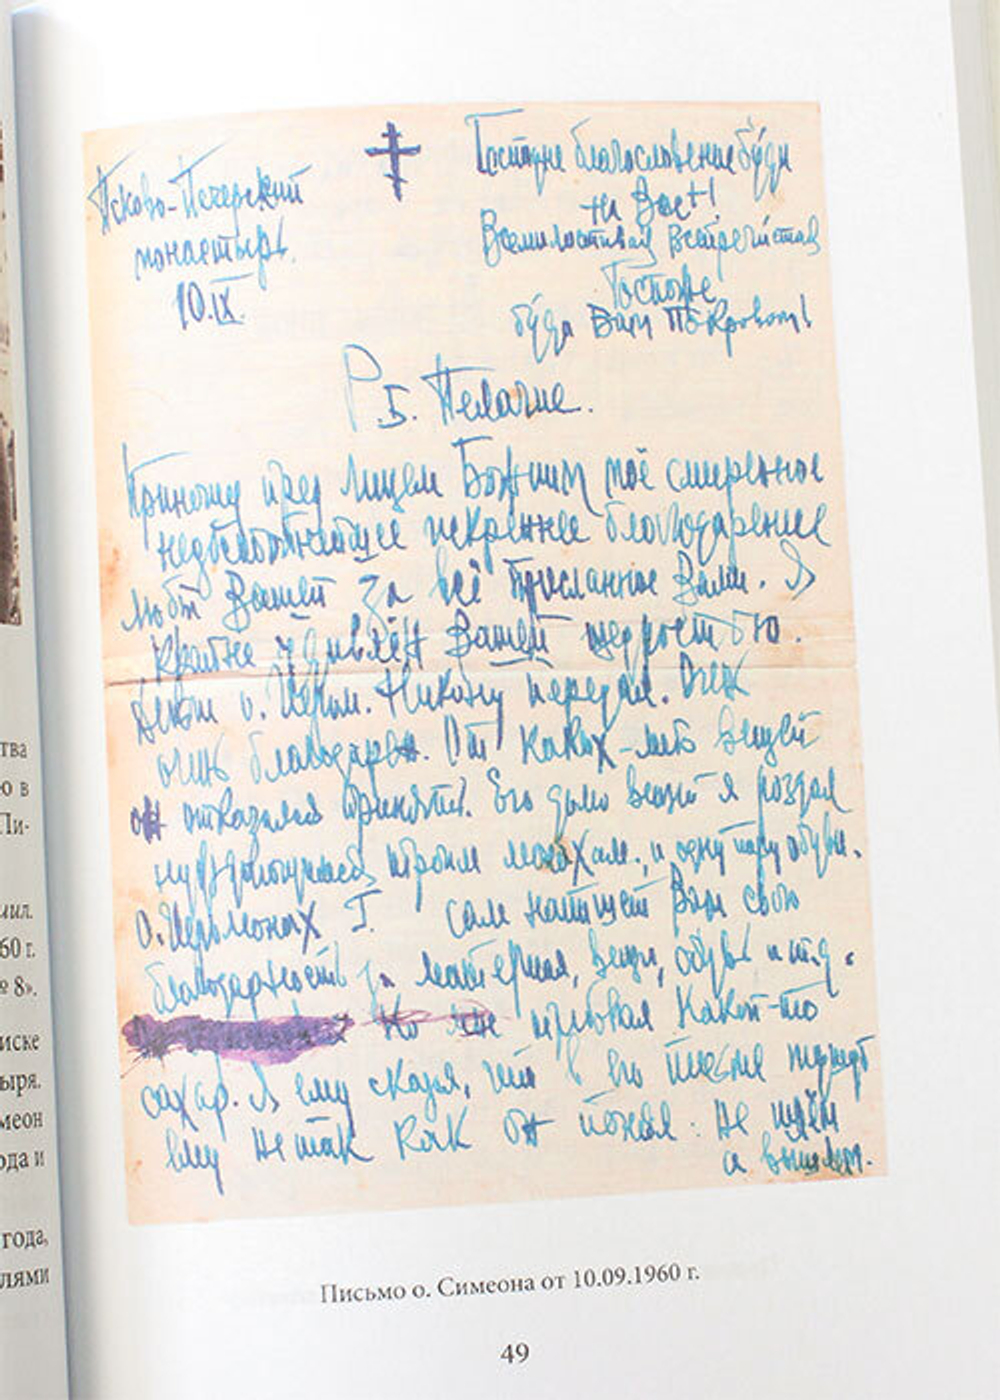 тва
ю в
Пи-
мил.
60 г.
№ 8».
иске
ыря.
меон
ода и
года,
лями
Псково-Печерский
монастырь.
10.IX.
Господне благословение буди
на Вас!
Всемилостивая
Госпоже
буди Вам Покровом!
Р.Б. Пелагие.
Приношу пред Лицем Божиим моё смиренное
искреннее благодарение
любви Вашей за всё присланное Вами. Я
крайне удивлён Вашей щедростью.
о. Иером. Никону передал. Он
очень благодарен. От каких-либо вещей
он отказался принять. Его вещи я роздал
нуждающимся троим монахам, и одну пару обуви.
О. Иеромонах Г. сам напишет Вам свою
благодарность за материал, вещи, обувь и т.д.
Но мне какой-то
сахар. Я ему сказал, что в его
ему не так как он понял: не
а вышлем.
Письмо о. Симеона от 10.09.1960 г.
49